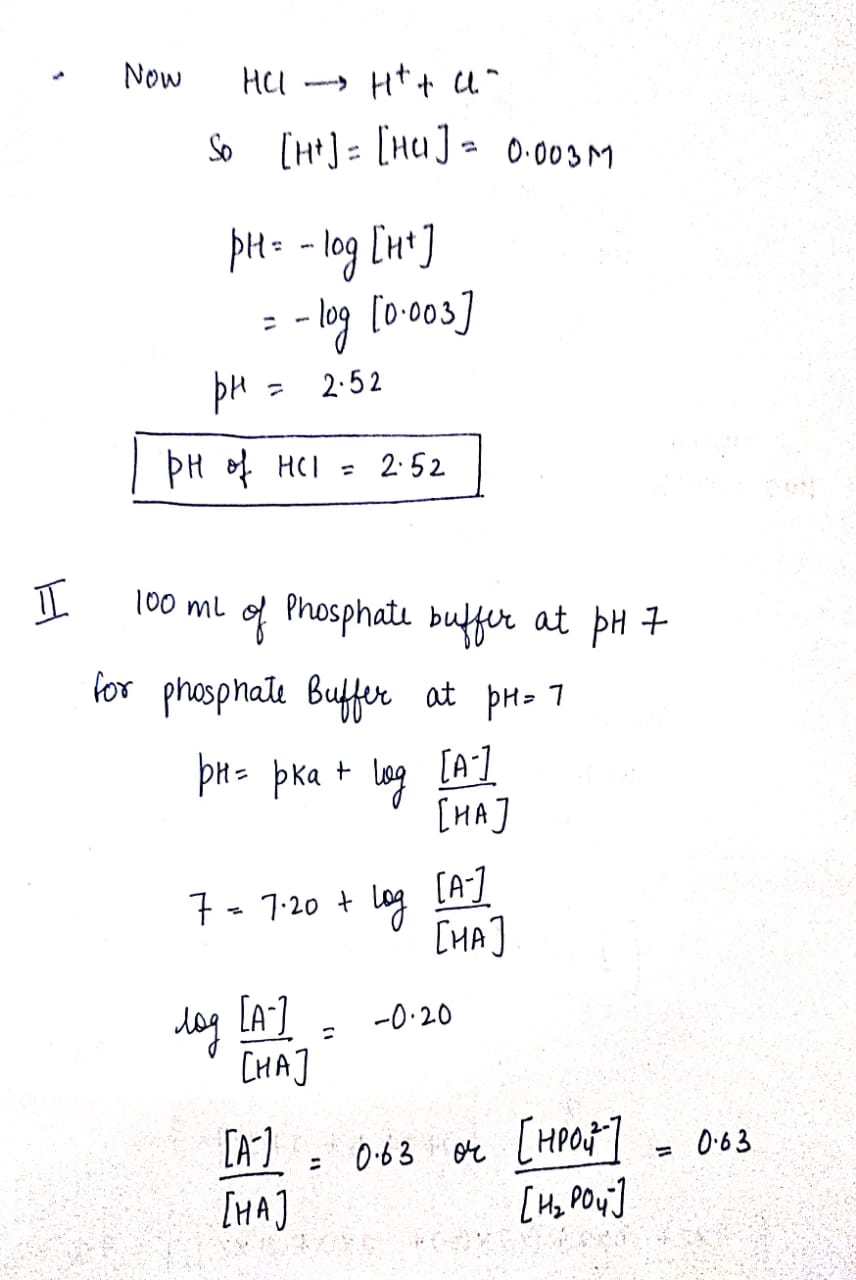 • Now HCl → H⁺ + Cl⁻
So [H⁺] = [HCl] = 0.003M
pH = - log [H⁺]
= - log [0.003]
pH = 2.52
pH of HCl = 2.52
II 100 mL of Phosphate buffer at pH 7
for phosphate Buffer at pH = 7
pH = pKa + log [A⁻]/[HA]
7 = 7.20 + log [A⁻]/[HA]
log [A⁻]/[HA] = -0.20
[A⁻]/[HA] = 0.63 or [HPO₄²⁻]/[H₂PO₄⁻] = 0.63